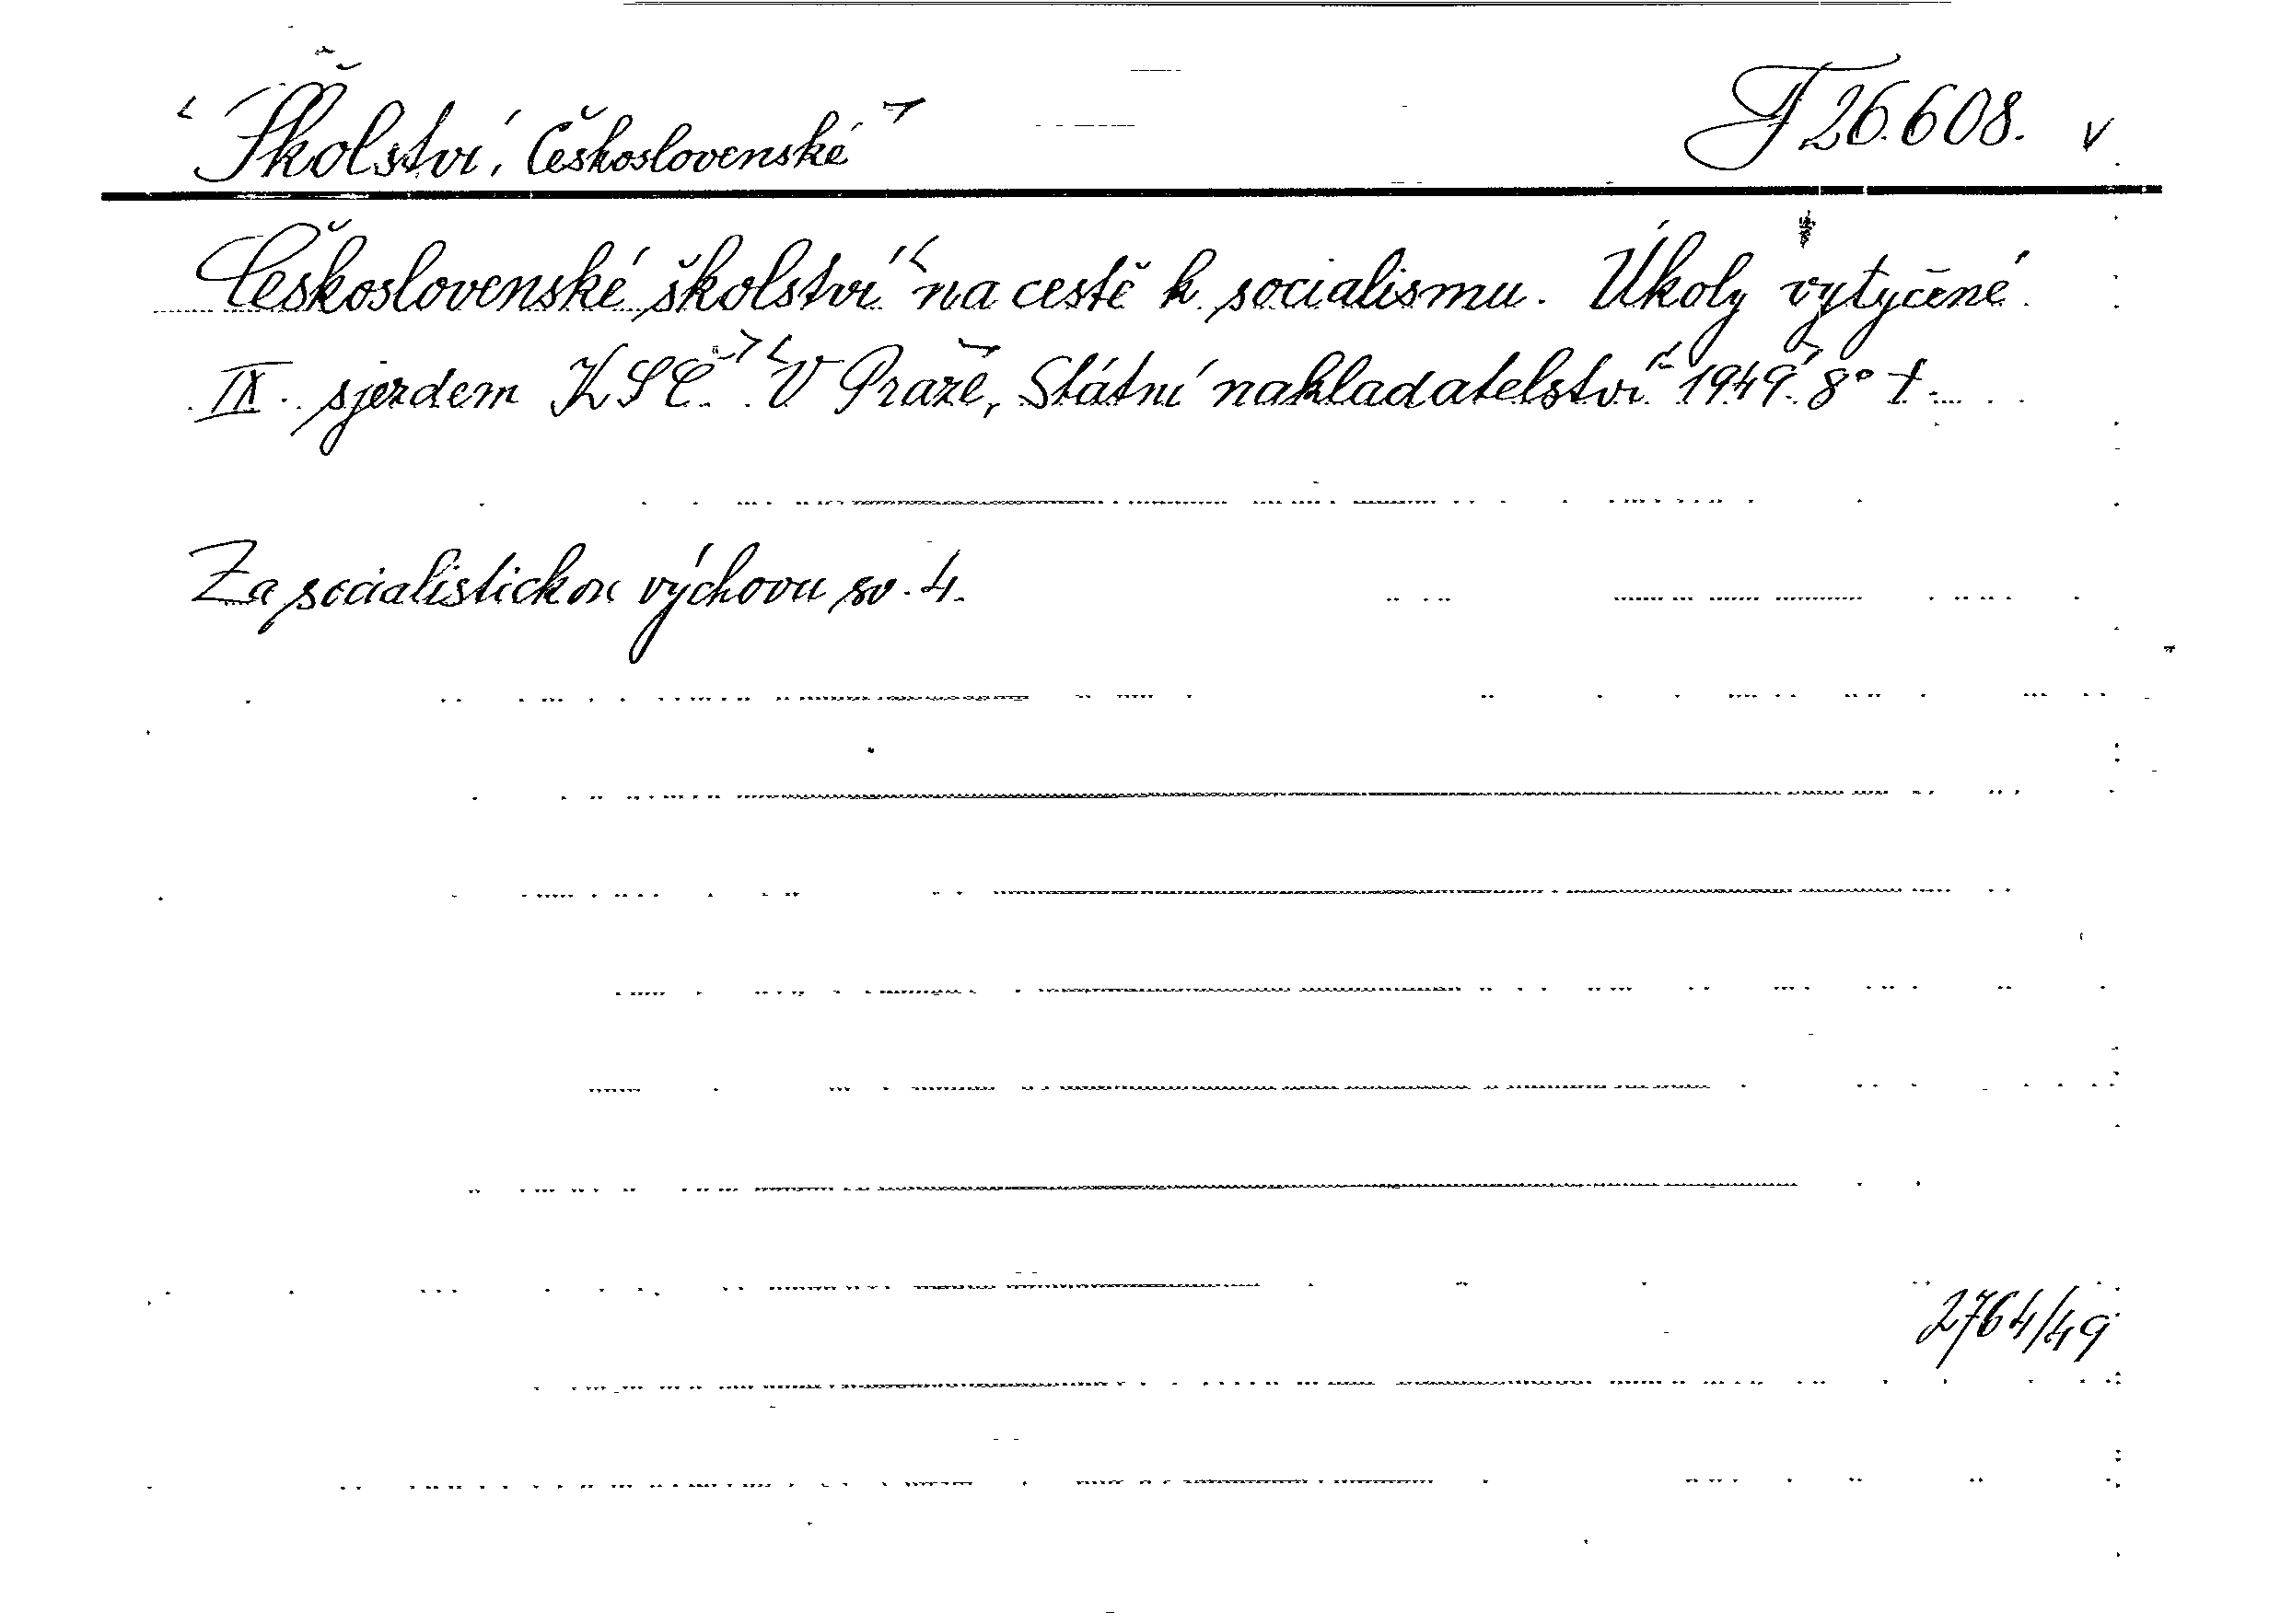 Školství, Československé
F 26.608. v
Československé školství na cestě k socialismu. Úkoly vytyčené
IX. sjezdem KSČ. V Praze, Státní nakladatelství 1949. 8° t.
Za socialistickou výchovu sv. 4.
2764/49